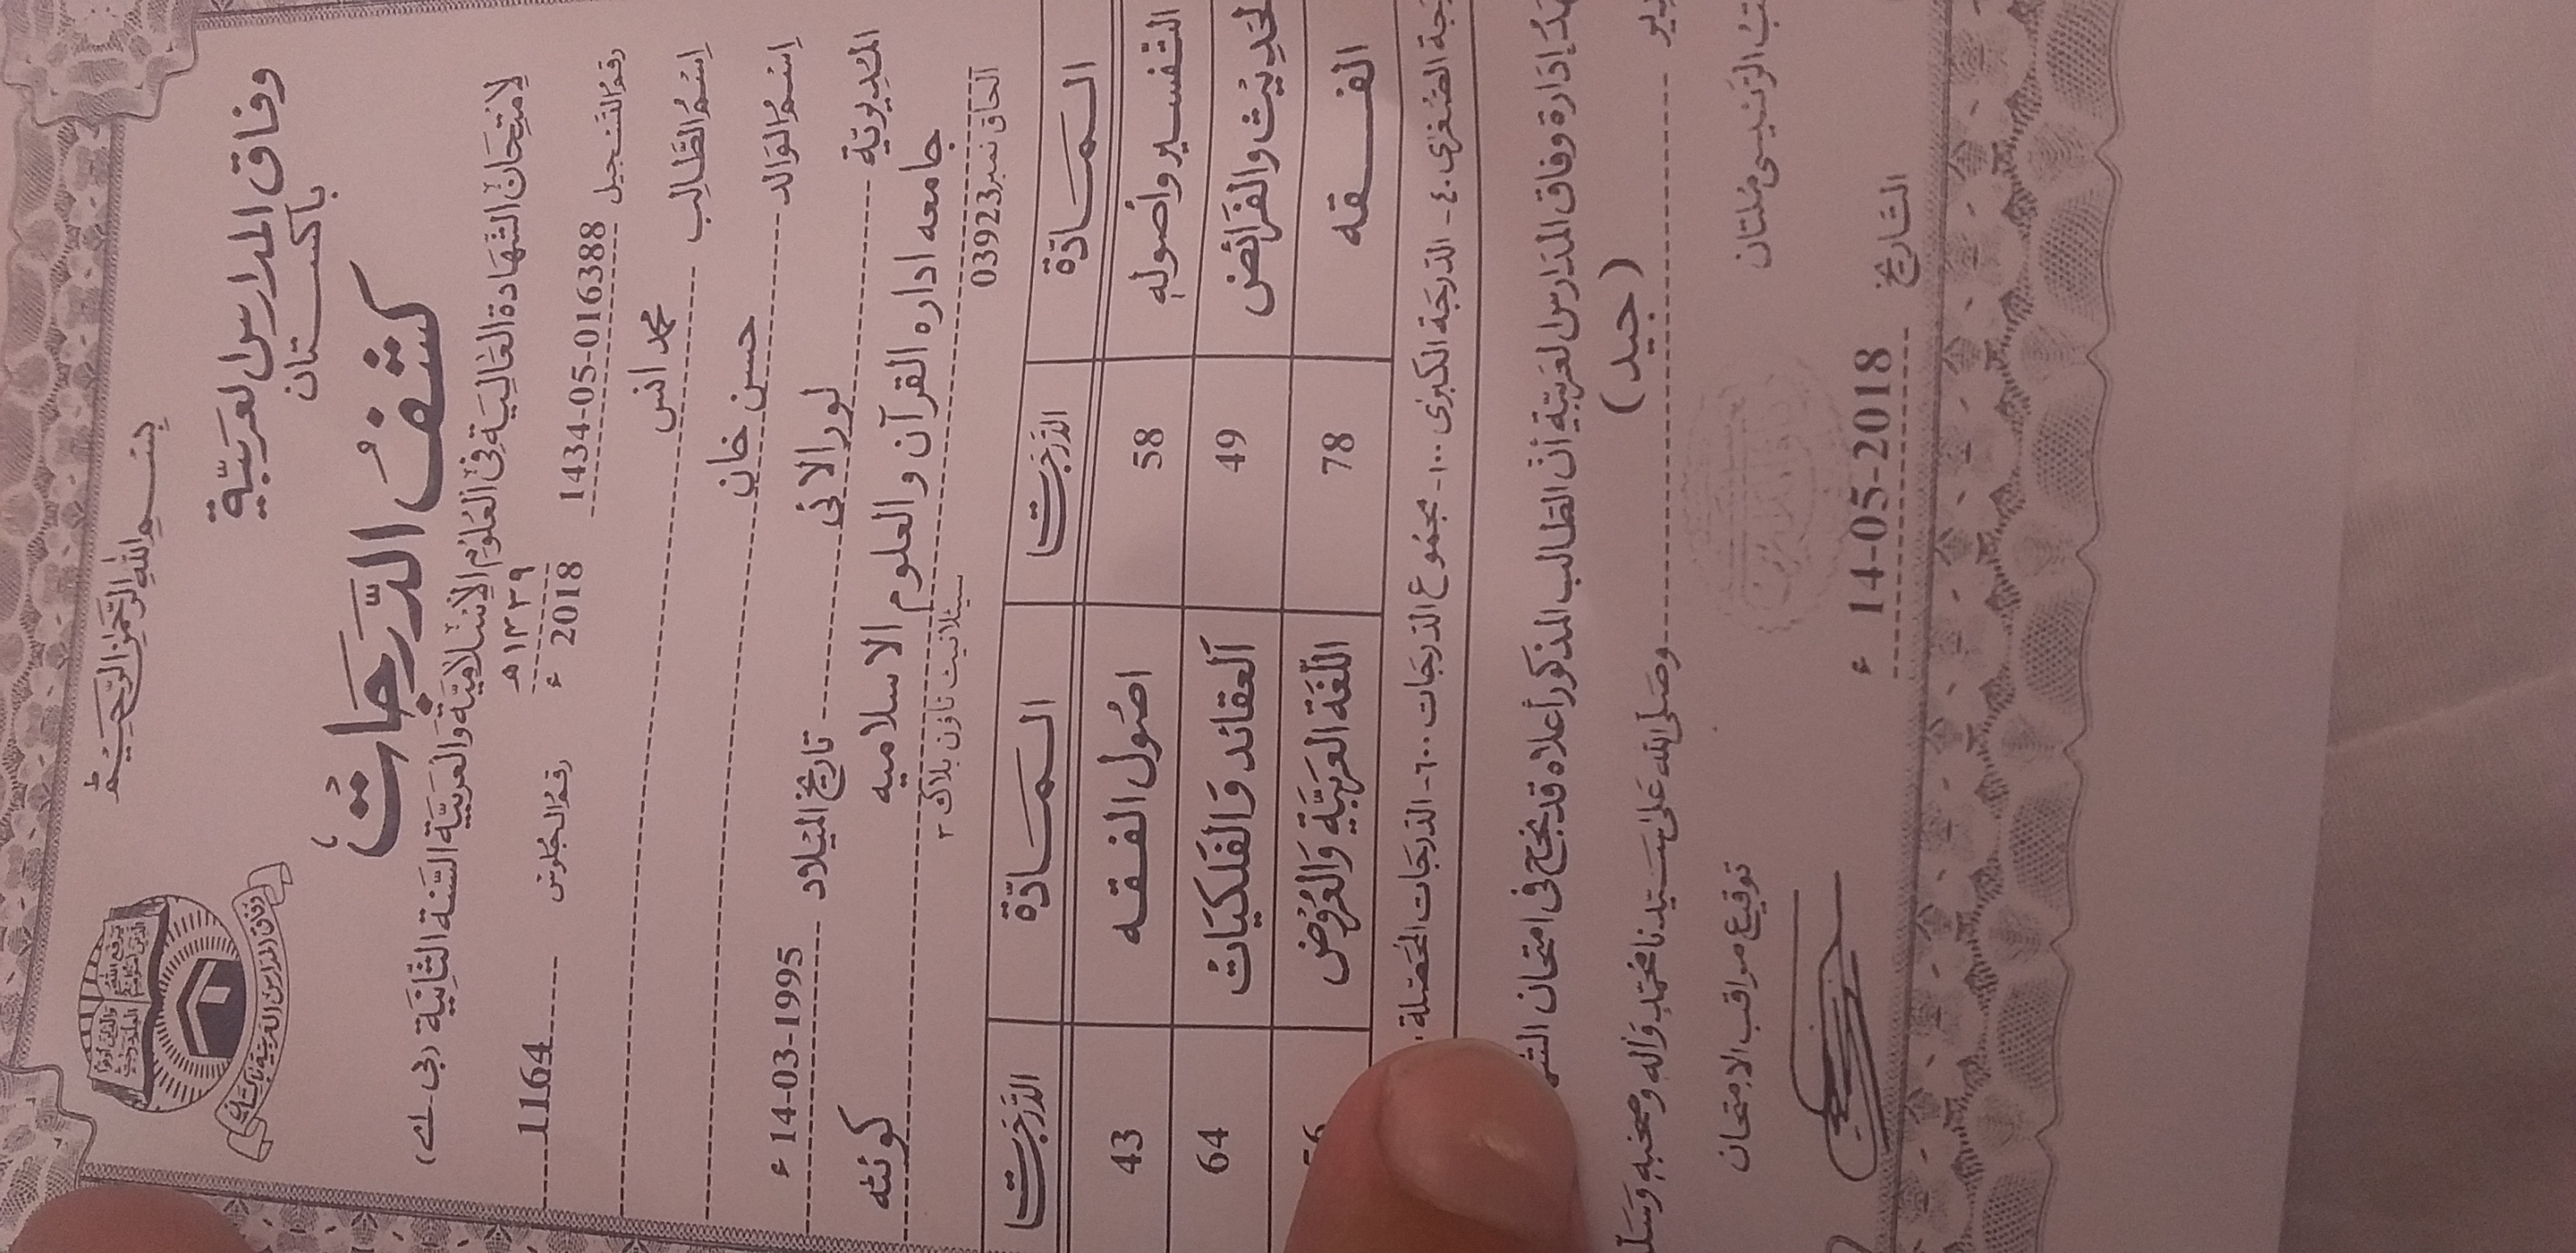 بِسْمِ اللهِ الرَّحْمٰنِ الرَّحِيْمِ
وفاق المدارس العربية
باكستان
كشف الدرجات
لامتحان الشهادة العالية في العلوم الإسلامية والعربية السنة الثانية (بی-اے)
١٤٣٩ هـ
رقم التسجيل 1434-05-016388 2018 ء رقم الجلوس 11164
اسم الطالب محمد انس
اسم الوالد حسن خان
المديرية لورالائی تاريخ الميلاد 14-03-1995 ء
جامعه اداره القرآن والعلوم الاسلاميه كوئٹه
الحاق نمبر 03923 سیٹلائیٹ ٹاؤن بلاک ۲
المادة الدرجات المادة الدرجات
التفسير وأصوله 58 اصول الفقه 43
الحديث والفرائض 49 العقائد والفلكيات 64
الفقه 78 اللغة العربية والعروض
الصغرى ٤٠ - الدرجة الكبرى ١٠٠ - مجموع الدرجات ٦٠٠ - الدرجات المحصلة
إدارة وفاق المدارس العربية أن الطالب المذكور أعلاه قد نجح في امتحان
(جيد) وصلى الله على سيدنا محمد وآله وصحبه وسلم
الرئيسي ملتان توقيع مراقب الامتحان
التاريخ 14-05-2018 ء